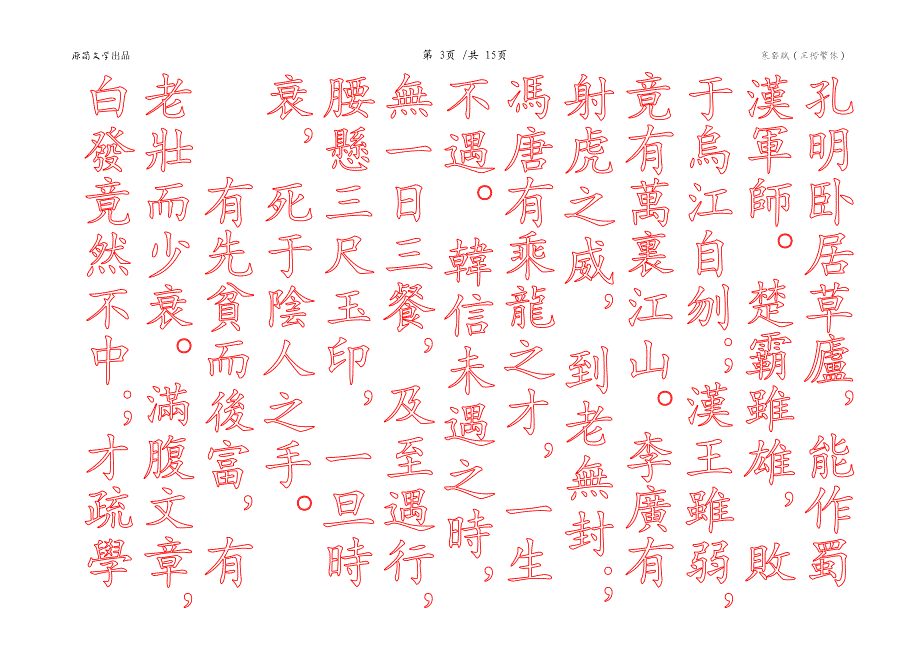 文学出品
第 3页 /共 15页
寒窑赋（正楷繁体）
孔明卧居草廬，能作蜀
漢軍師。楚霸雖雄，敗
于烏江自刎；漢王雖弱，
竟有萬裏江山。李廣有
射虎之威，到老無封；
馮唐有乘龍之才，一生
不遇。韓信未遇之時，
無一日三餐，及至遇行，
腰懸三尺玉印，一旦時
衰，死于陰人之手。
有先貧而後富，有
老壯而少衰。滿腹文章，
白發竟然不中；才疏學